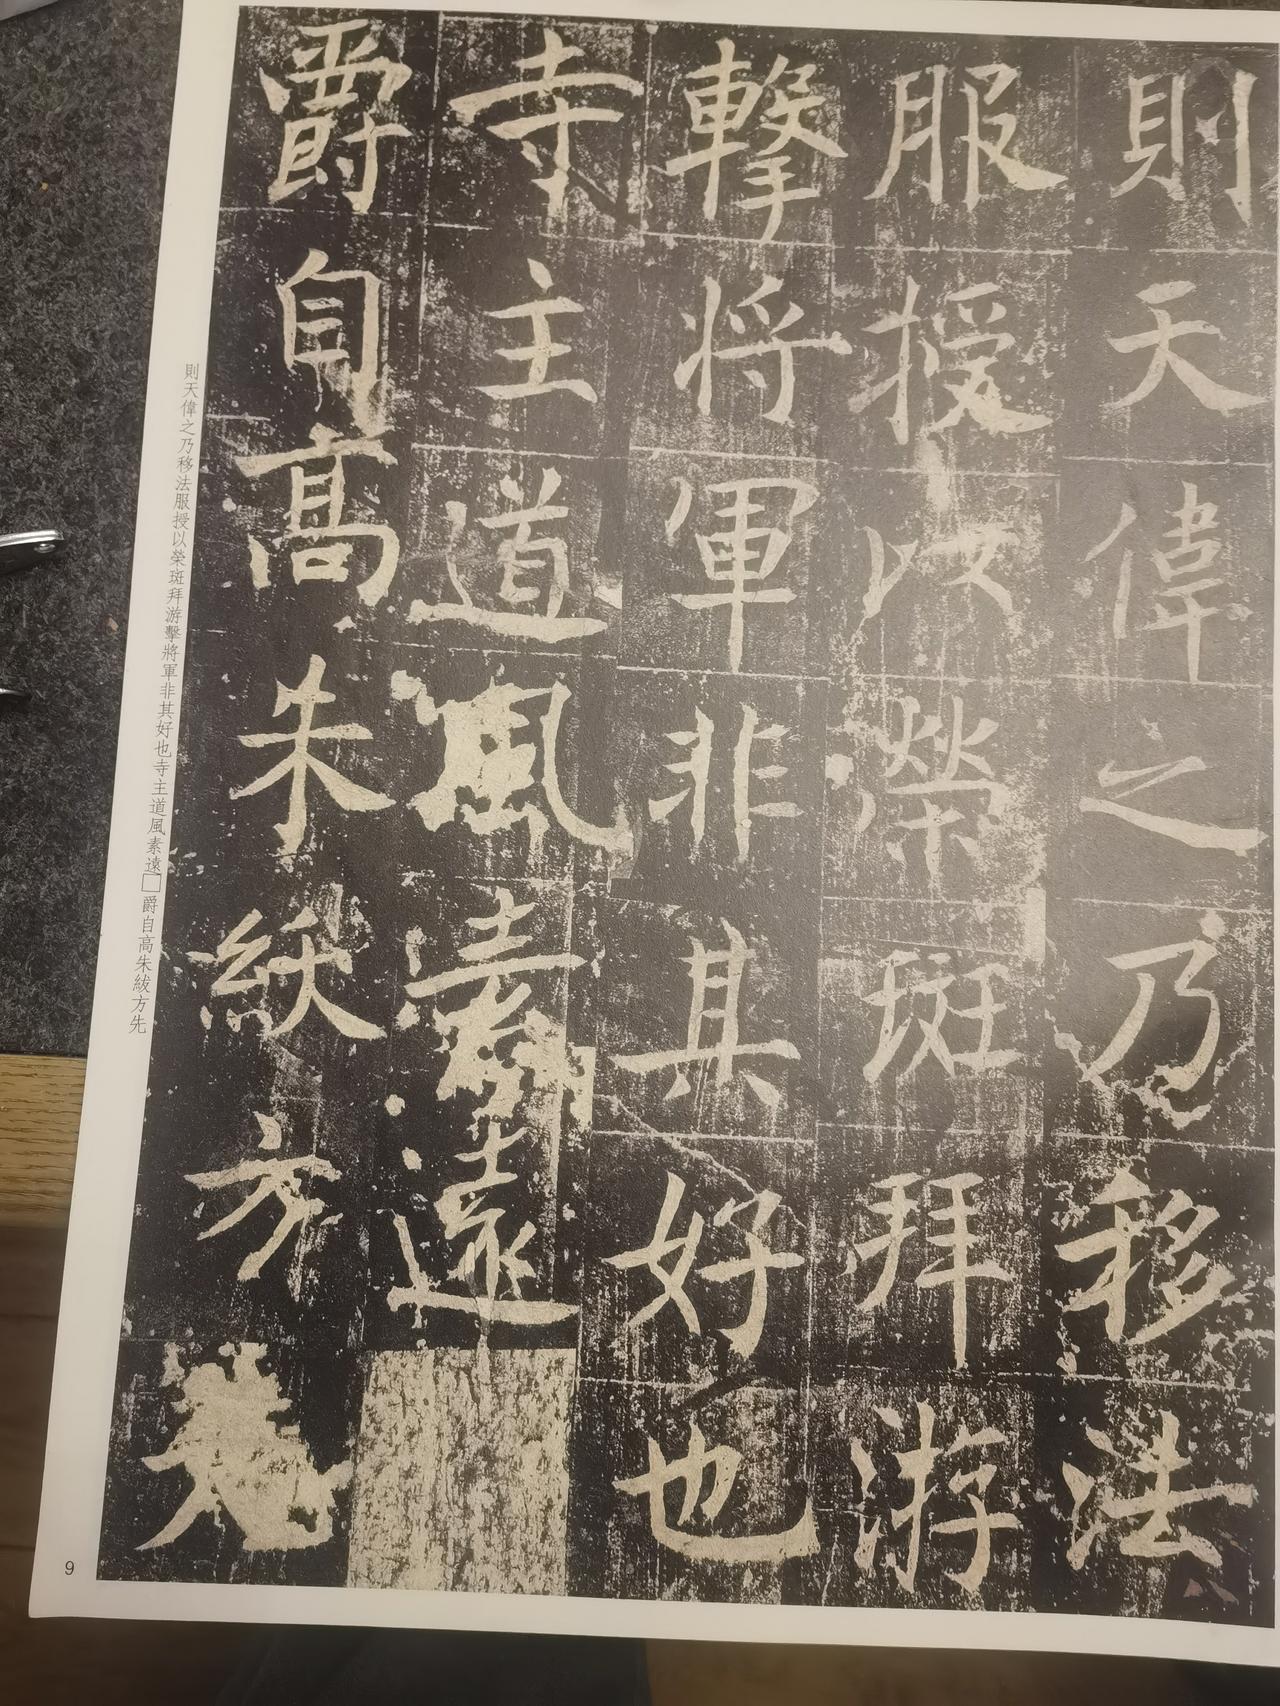 則天偉之乃移法
服授以榮斑拜游
擊將軍非其好也
寺主道風素遠
爵自高朱紱方先
則天偉之乃移法服授以榮斑拜游擊將軍非其好也寺主道風素遠□爵自高朱紱方先
9